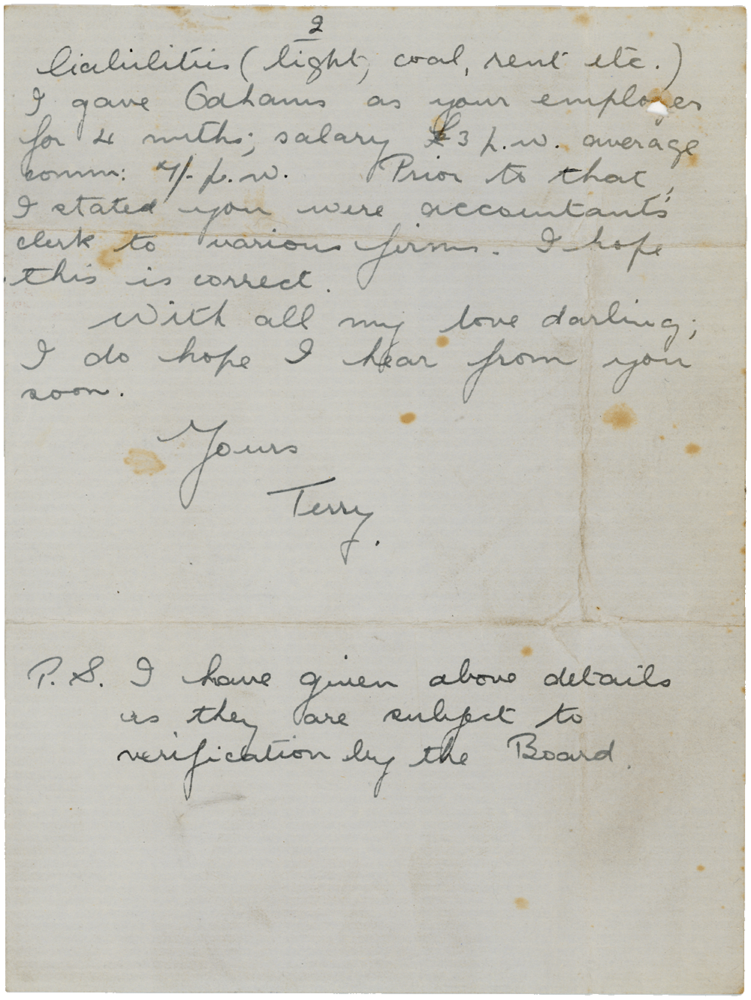 2
liabilities (light, coal, rent etc.)
I gave Odhams as your employers
for 4 mnths; salary £3 p.w. average
comm: 7/- p.w. Prior to that,
I stated you were accountants'
clerk to various firms. I hope
this is correct.
With all my love darling;
I do hope I hear from you
soon.
Yours
Terry.
P.S. I have given above details
as they are subject to
verification by the Board.